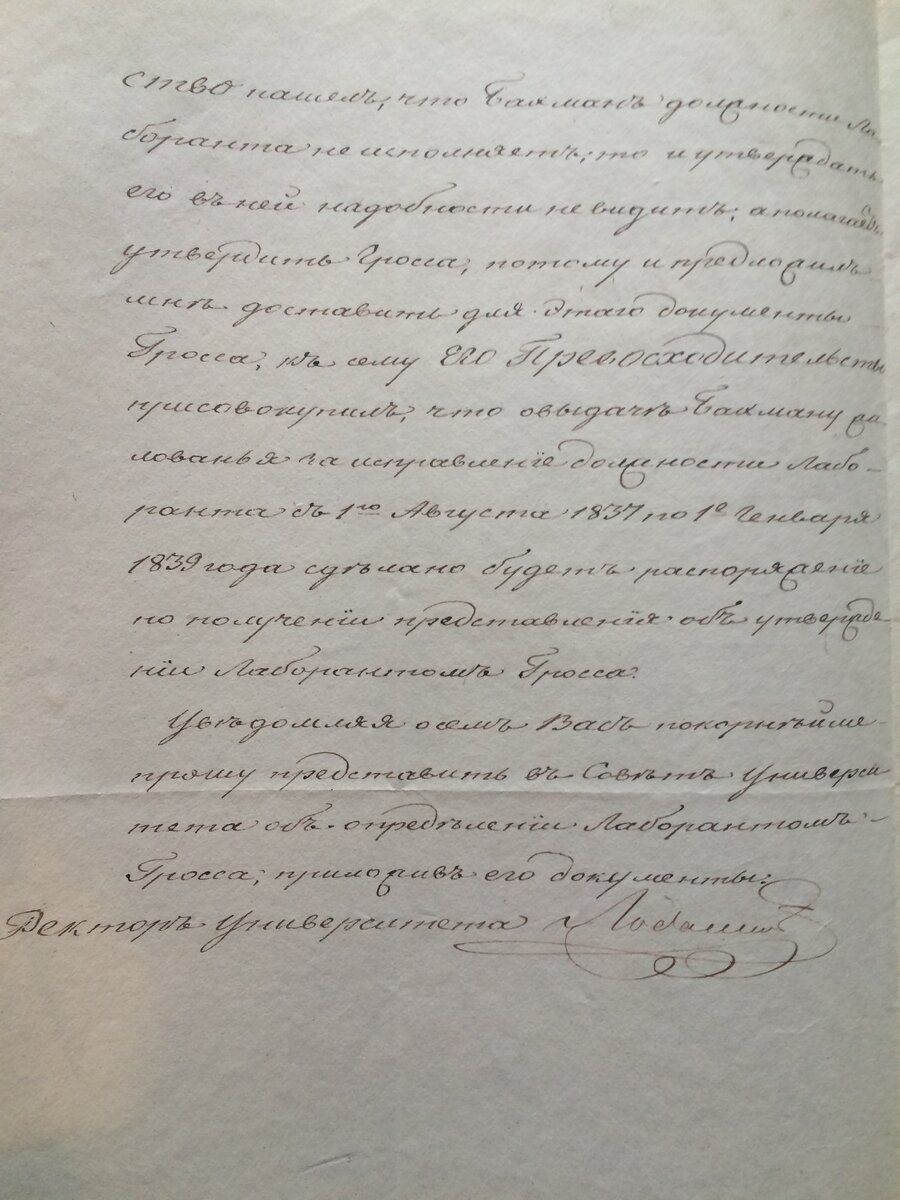 ство нашелъ, что Бахманъ должности Ла
боранта не исполняетъ; то и утверждать
его въ ней надобности не видитъ; а полагаетъ
утвердить Гросса, потому и предложилъ
мнѣ доставить для этаго документы
Гросса, къ сему Его Превосходительство
присовокупилъ, что о выдачѣ Бахману жа-
лованья за исправленіе должности Лабо-
ранта съ 1го Августа 1837 по 1е Генваря
1839 года сдѣлано будетъ распоряженіе
по полученіи представленія объ утвержде-
ніи Лаборантомъ Гросса.
Увѣдомляя о семъ Васъ покорнѣйше
прошу представить въ Совѣтъ Универси
тета объ опредѣленіи Лаборантомъ
Гросса, приложивъ его документы.
Ректоръ Университета Лобачевскій